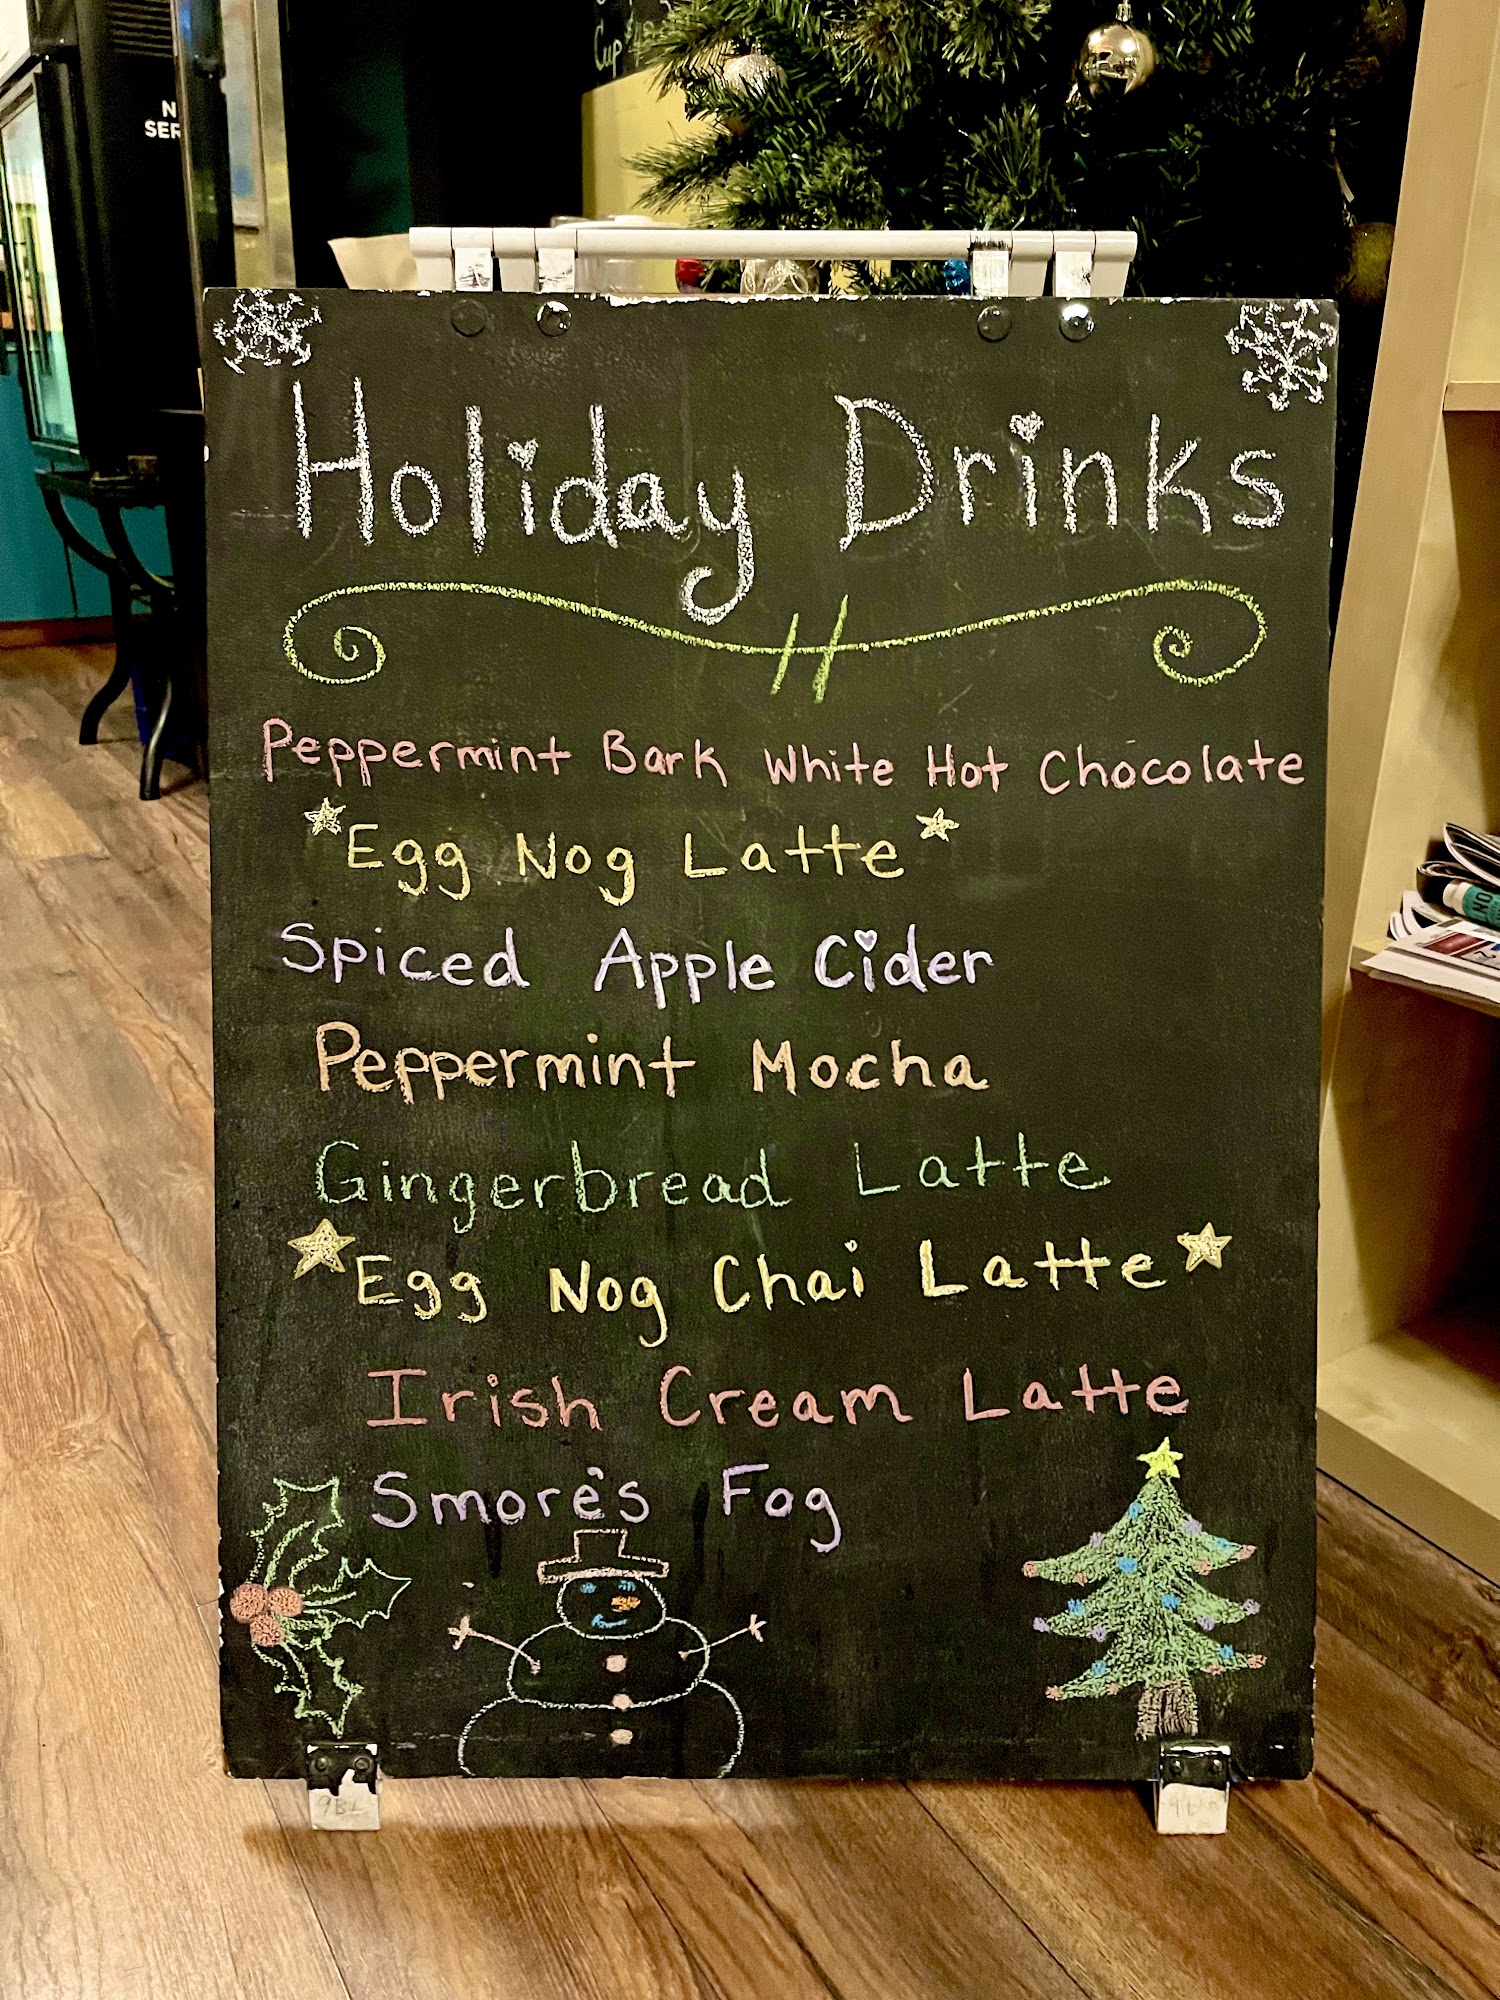 Cup
N
SER
Holiday Drinks
Peppermint Bark White Hot Chocolate
Egg Nog Latte
Spiced Apple Cider
Peppermint Mocha
Gingerbread Latte
Egg Nog Chai Latte
Irish Cream Latte
Smore's Fog